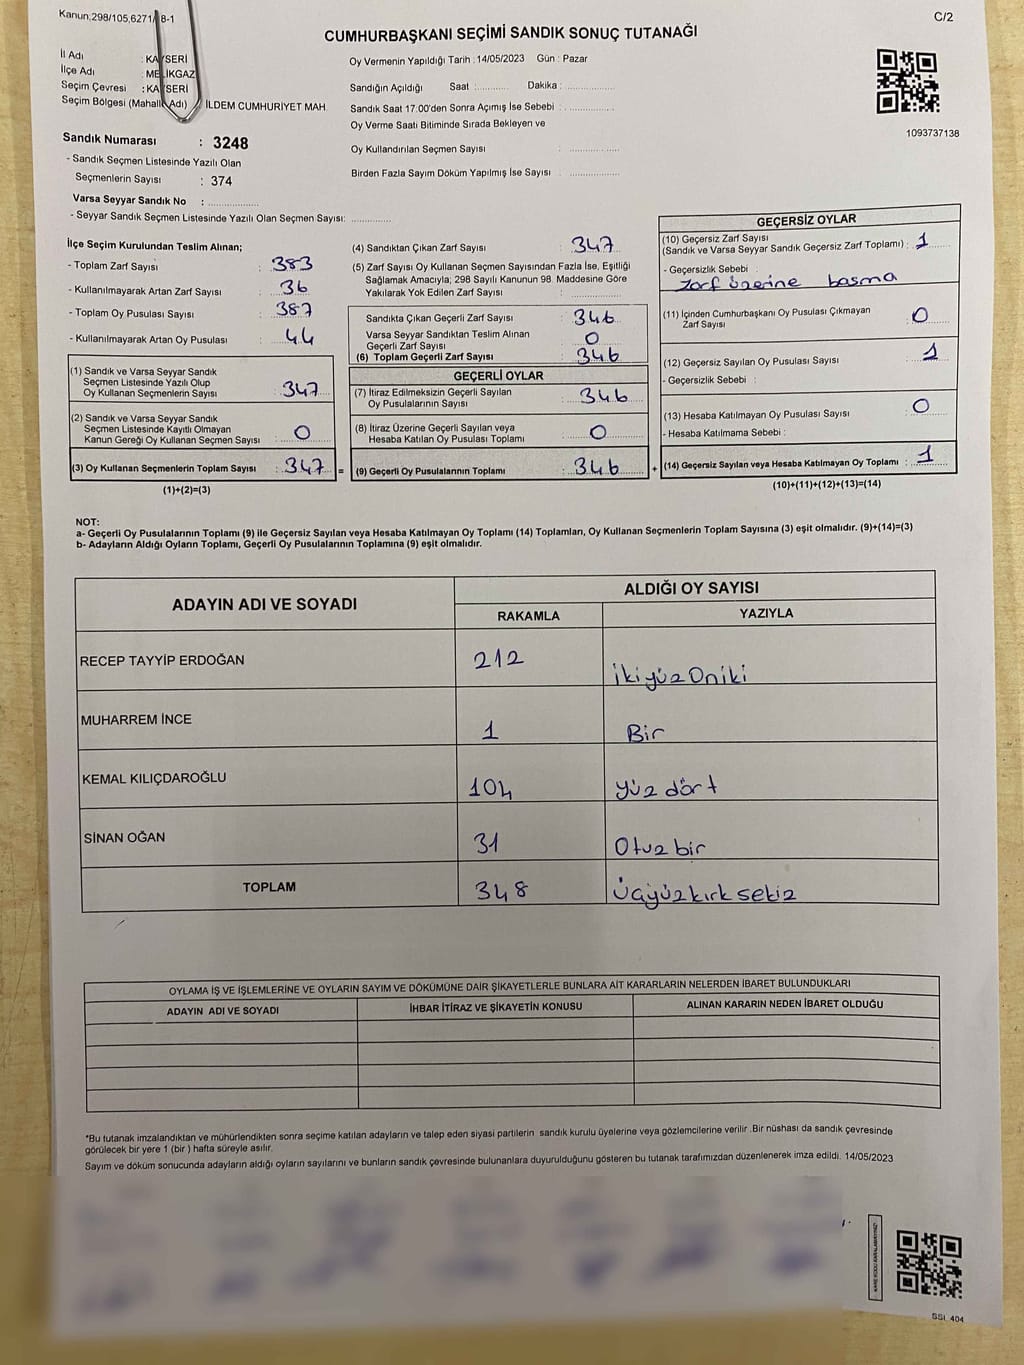 Kanun.298/105,6271/ 8-1
C/2
CUMHURBAŞKANI SEÇİMİ SANDIK SONUÇ TUTANAĞI
İl Adı : KAYSERİ
İlçe Adı : MELİKGAZ
Seçim Çevresi : KAYSERİ
Seçim Bölgesi (Mahalle Adı) İLDEM CUMHURİYET MAH.
Oy Vermenin Yapıldığı Tarih : 14/05/2023 Gün : Pazar
Sandığın Açıldığı Saat ............ Dakika : ...............
Sandık Saat 17:00'den Sonra Açımış İse Sebebi : ...............
Oy Verme Saati Bitiminde Sırada Bekleyen ve
Oy Kullandırılan Seçmen Sayısı : ...............
Birden Fazla Sayım Döküm Yapılmış İse Sayısı ...............
1093737138
Sandık Numarası : 3248
- Sandık Seçmen Listesinde Yazılı Olan
Seçmenlerin Sayısı : 374
Varsa Seyyar Sandık No : ...............
- Seyyar Sandık Seçmen Listesinde Yazılı Olan Seçmen Sayısı: ............
İlçe Seçim Kurulundan Teslim Alınan;
- Toplam Zarf Sayısı : 383
- Kullanılmayarak Artan Zarf Sayısı : 36
- Toplam Oy Pusulası Sayısı : 387
- Kullanılmayarak Artan Oy Pusulası : 44
(1) Sandık ve Varsa Seyyar Sandık
Seçmen Listesinde Yazılı Olup
Oy Kullanan Seçmenlerin Sayısı : 347
(2) Sandık ve Varsa Seyyar Sandık
Seçmen Listesinde Kayıtlı Olmayan
Kanun Gereği Oy Kullanan Seçmen Sayısı : 0
(3) Oy Kullanan Seçmenlerin Toplam Sayısı : 347 =
(1)+(2)=(3)
(4) Sandıktan Çıkan Zarf Sayısı : 347
(5) Zarf Sayısı Oy Kullanan Seçmen Sayısından Fazla İse, Eşitliği
Sağlamak Amacıyla; 298 Sayılı Kanunun 98. Maddesine Göre
Yakılarak Yok Edilen Zarf Sayısı : ............
Sandıkta Çıkan Geçerli Zarf Sayısı : 346
Varsa Seyyar Sandıktan Teslim Alınan
Geçerli Zarf Sayısı : 0
(6) Toplam Geçerli Zarf Sayısı : 346
GEÇERLİ OYLAR
(7) İtiraz Edilmeksizin Geçerli Sayılan
Oy Pusulalarının Sayısı : 346
(8) İtiraz Üzerine Geçerli Sayılan veya
Hesaba Katılan Oy Pusulası Toplamı : 0
(9) Geçerli Oy Pusulalarının Toplamı : 346 +
GEÇERSİZ OYLAR
(10) Geçersiz Zarf Sayısı
(Sandık ve Varsa Seyyar Sandık Geçersiz Zarf Toplamı) : 1
- Geçersizlik Sebebi :
Zarf üzerine basma
(11) İçinden Cumhurbaşkanı Oy Pusulası Çıkmayan
Zarf Sayısı : 0
(12) Geçersiz Sayılan Oy Pusulası Sayısı : 1
- Geçersizlik Sebebi :
(13) Hesaba Katılmayan Oy Pusulası Sayısı : 0
- Hesaba Katılmama Sebebi :
(14) Geçersiz Sayılan veya Hesaba Katılmayan Oy Toplamı : 1
(10)+(11)+(12)+(13)=(14)
NOT:
a- Geçerli Oy Pusulalarının Toplamı (9) ile Geçersiz Sayılan veya Hesaba Katılmayan Oy Toplamı (14) Toplamları, Oy Kullanan Seçmenlerin Toplam Sayısına (3) eşit olmalıdır. (9)+(14)=(3)
b- Adayların Aldığı Oyların Toplamı, Geçerli Oy Pusulalarının Toplamına (9) eşit olmalıdır.
ADAYIN ADI VE SOYADI ALDIĞI OY SAYISI
RAKAMLA YAZIYLA
RECEP TAYYİP ERDOĞAN 212 İkiyüz Oniki
MUHARREM İNCE 1 Bir
KEMAL KILIÇDAROĞLU 104 Yüz dört
SİNAN OĞAN 31 Otuz bir
TOPLAM 348 Üçyüz kırk sekiz
OYLAMA İŞ VE İŞLEMLERİNE VE OYLARIN SAYIM VE DÖKÜMÜNE DAİR ŞİKAYETLERLE BUNLARA AİT KARARLARIN NELERDEN İBARET BULUNDUKLARI
ADAYIN ADI VE SOYADI İHBAR İTİRAZ VE ŞİKAYETİN KONUSU ALINAN KARARIN NEDEN İBARET OLDUĞU
*Bu tutanak imzalandıktan ve mühürlendikten sonra seçime katılan adayların ve talep eden siyasi partilerin sandık kurulu üyelerine veya gözlemcilerine verilir .Bir nüshası da sandık çevresinde
görülecek bir yere 1 (bir ) hafta süreyle asılır.
Sayım ve döküm sonucunda adayların aldığı oyların sayılarını ve bunların sandık çevresinde bulunanlara duyurulduğunu gösteren bu tutanak tarafımızdan düzenlenerek imza edildi. 14/05/2023
SSI_404